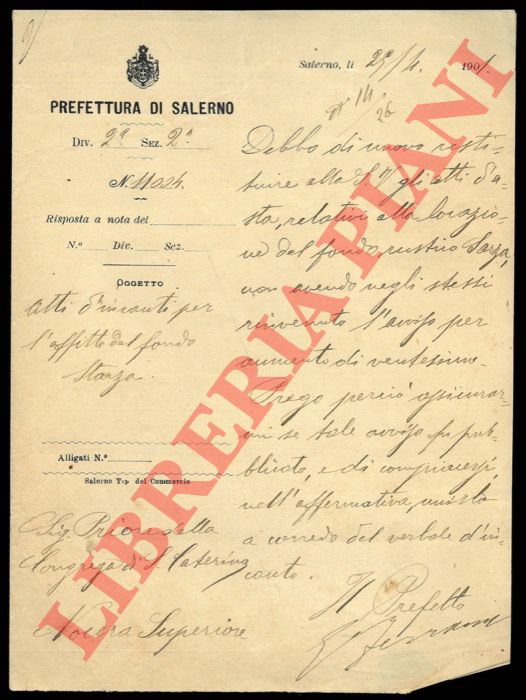 Salerno, lì 29/4. 1901.
Nº 14/26
PREFETTURA DI SALERNO
Div. 2ª Sez. 2ª
N. 11024.
Risposta a nota del
N.º Div. Sez.
OGGETTO
Atti d'incanti per
l'affitto del fondo
Starza.
Alligati N.º
Salerno Tip del Commercio
Sig. Priore della
Congrega di S. Caterina
Nocera Superiore
Debbo di nuovo resti-
tuire alla S. V. gli atti d'a-
sta, relativi alla locazio-
ne del fondo rustico Starza,
non avendo negli stessi
rinvenuto l'avviso per
aumento di ventesimo.
Prego perciò assicurar-
mi se tale avviso fu pub-
blicato, e di compiacersi,
nell'affermativa, unirlo
a corredo del verbale d'in-
canto.
Il Prefetto
LIBRERIA PIANI